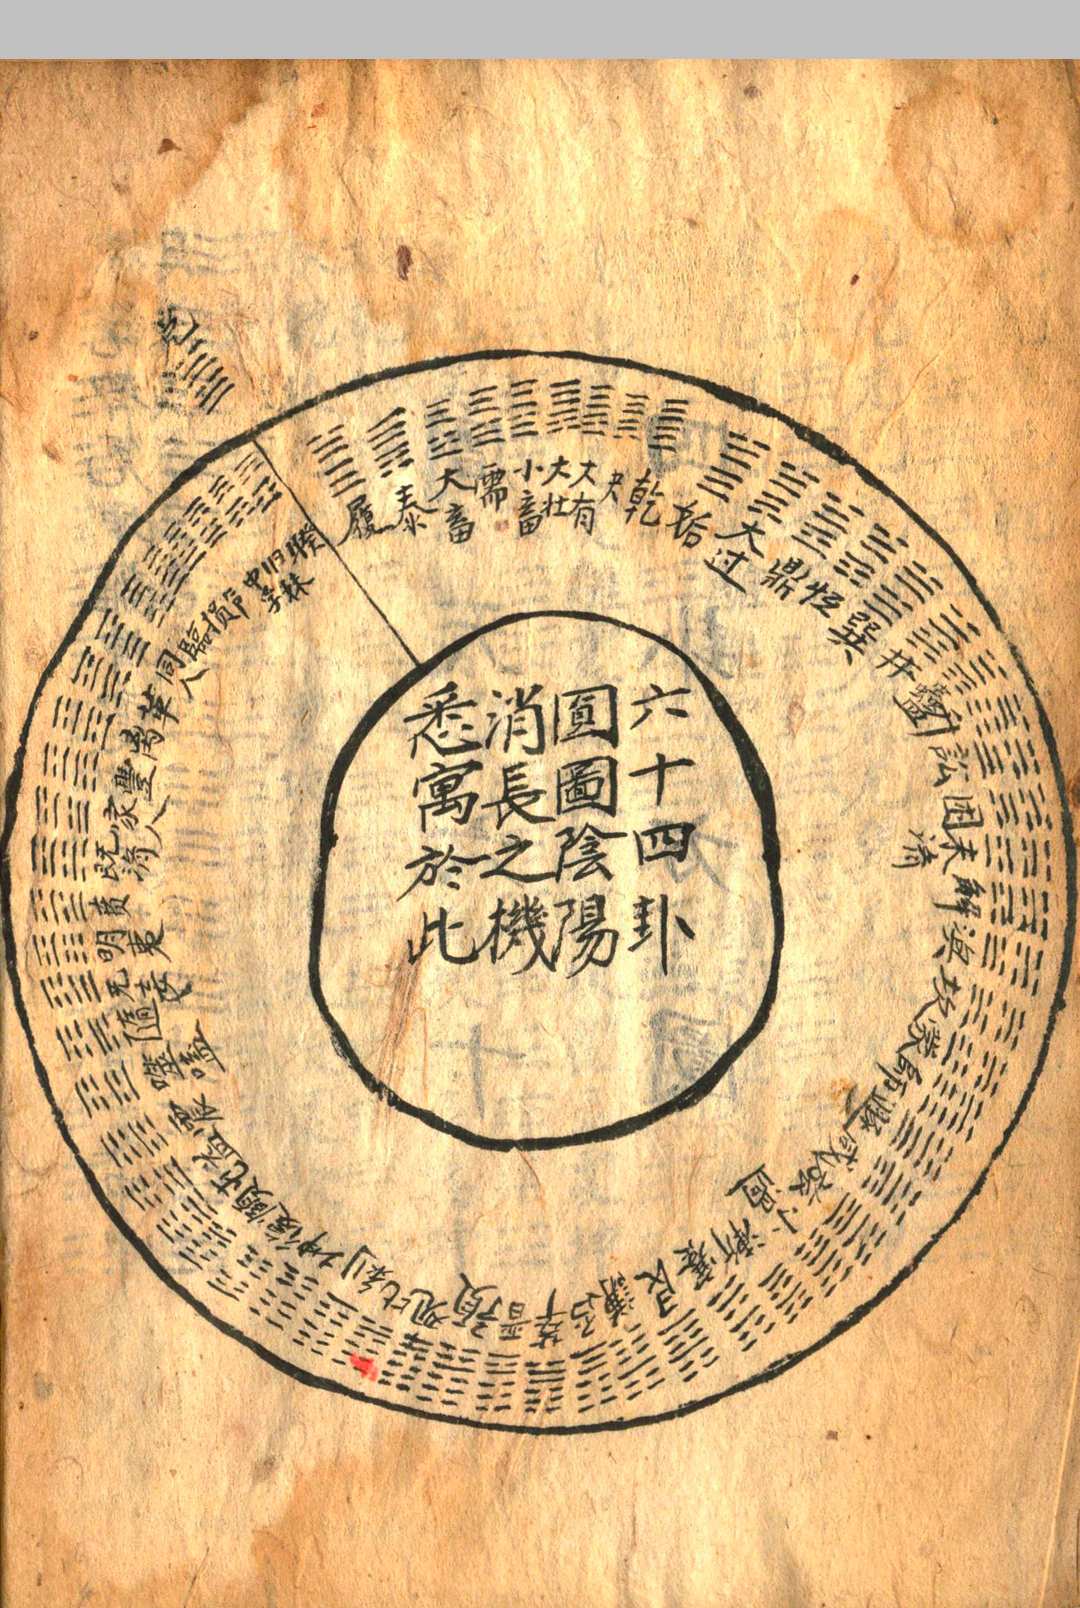 六十四卦
圓圖陰陽
消長之機
悉寓於此
乾
姤
大过
鼎
恒
巽
井
蠱
升
訟
困
未濟
解
渙
師
咸
小過
漸
蹇
艮
謙
否
萃
晋
預
观
比
剝
坤
復
頤
屯
益
震
噬嗑
隨
无妄
明夷
賁
既濟
家人
豐
离
革
同人
臨
損
節
中孚
归妹
睽
兑
履
泰
大畜
需
小畜
大壯
大有
夬